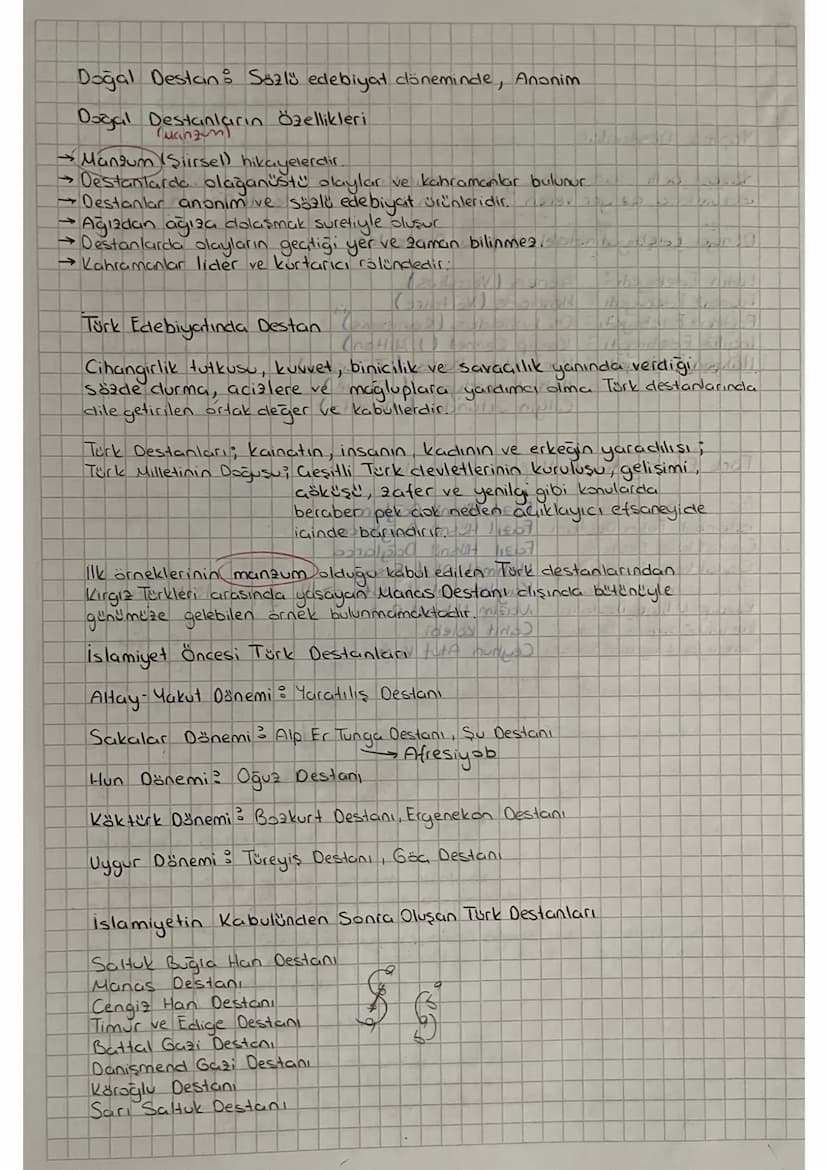 Doğal Destan: Sözlü edebiyat döneminde, Anonim
Doğal Destanların Özellikleri
(manzum)
→ Manzum (Şiirsel) hikayelerdir.
→ Destanlarda olağanüstü olaylar ve kahramanlar bulunur
→ Destanlar anonim ve sözlü edebiyat ürünleridir.
→ Ağızdan ağıza dolaşmak suretiyle oluşur
→ Destanlarda olayların geçtiği yer ve zaman bilinmez.
→ Kahramanlar lider ve kurtarıcı rolündedir.
Türk Edebiyatında Destan
Cihangirlik tutkusu, kuvvet, binicilik ve savaçılık yanında verdiği
sözde durma, acizlere ve mağluplara yardımcı olma Türk destanlarında
dile getirilen ortak değer ve kabullerdir.
Türk Destanları; kainatın, insanın, kadının ve erkeğin yaradılışı;
Türk Milletinin Doğuşu; Çeşitli Türk devletlerinin kuruluşu, gelişimi,
çöküşü, zafer ve yenilgi gibi konularda
beraber pek çok neden açıklayıcı efsaneyide
içinde barındırır.
İlk örneklerinin manzum olduğu kabul edilen Türk destanlarından
Kırgız Türkleri arasında yaşayan Manas Destanı dışında bütünüyle
günümüze gelebilen örnek bulunmamaktadır.
İslamiyet Öncesi Türk Destanları
Altay-Yakut Dönemi: Yaratılış Destanı
Sakalar Dönemi: Alp Er Tunga Destanı, Şu Destanı
→ Afresiyab
Hun Dönemi: Oğuz Destanı
Köktürk Dönemi: Bozkurt Destanı, Ergenekon Destanı
Uygur Dönemi: Türeyiş Destanı, Göç Destanı
İslamiyetin Kabulünden Sonra Oluşan Türk Destanları
Saltuk Buğra Han Destanı
Manas Destanı
Cengiz Han Destanı
Timur ve Edige Destanı
Battal Gazi Destanı
Danişmend Gazi Destanı
Köroğlu Destanı
Sarı Saltuk Destanı